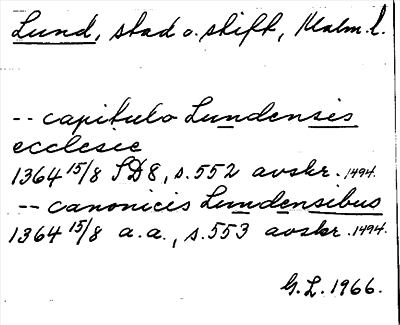 Lund, stad o. stift, Malm. l.
-- capitulo Lundensis
ecclesie
1364 15/8 SD 8, s. 552 avskr. 1494.
-- canonicis Lundensibus
1364 15/8 a.a., s. 553 avskr. 1494.
G.L. 1966.